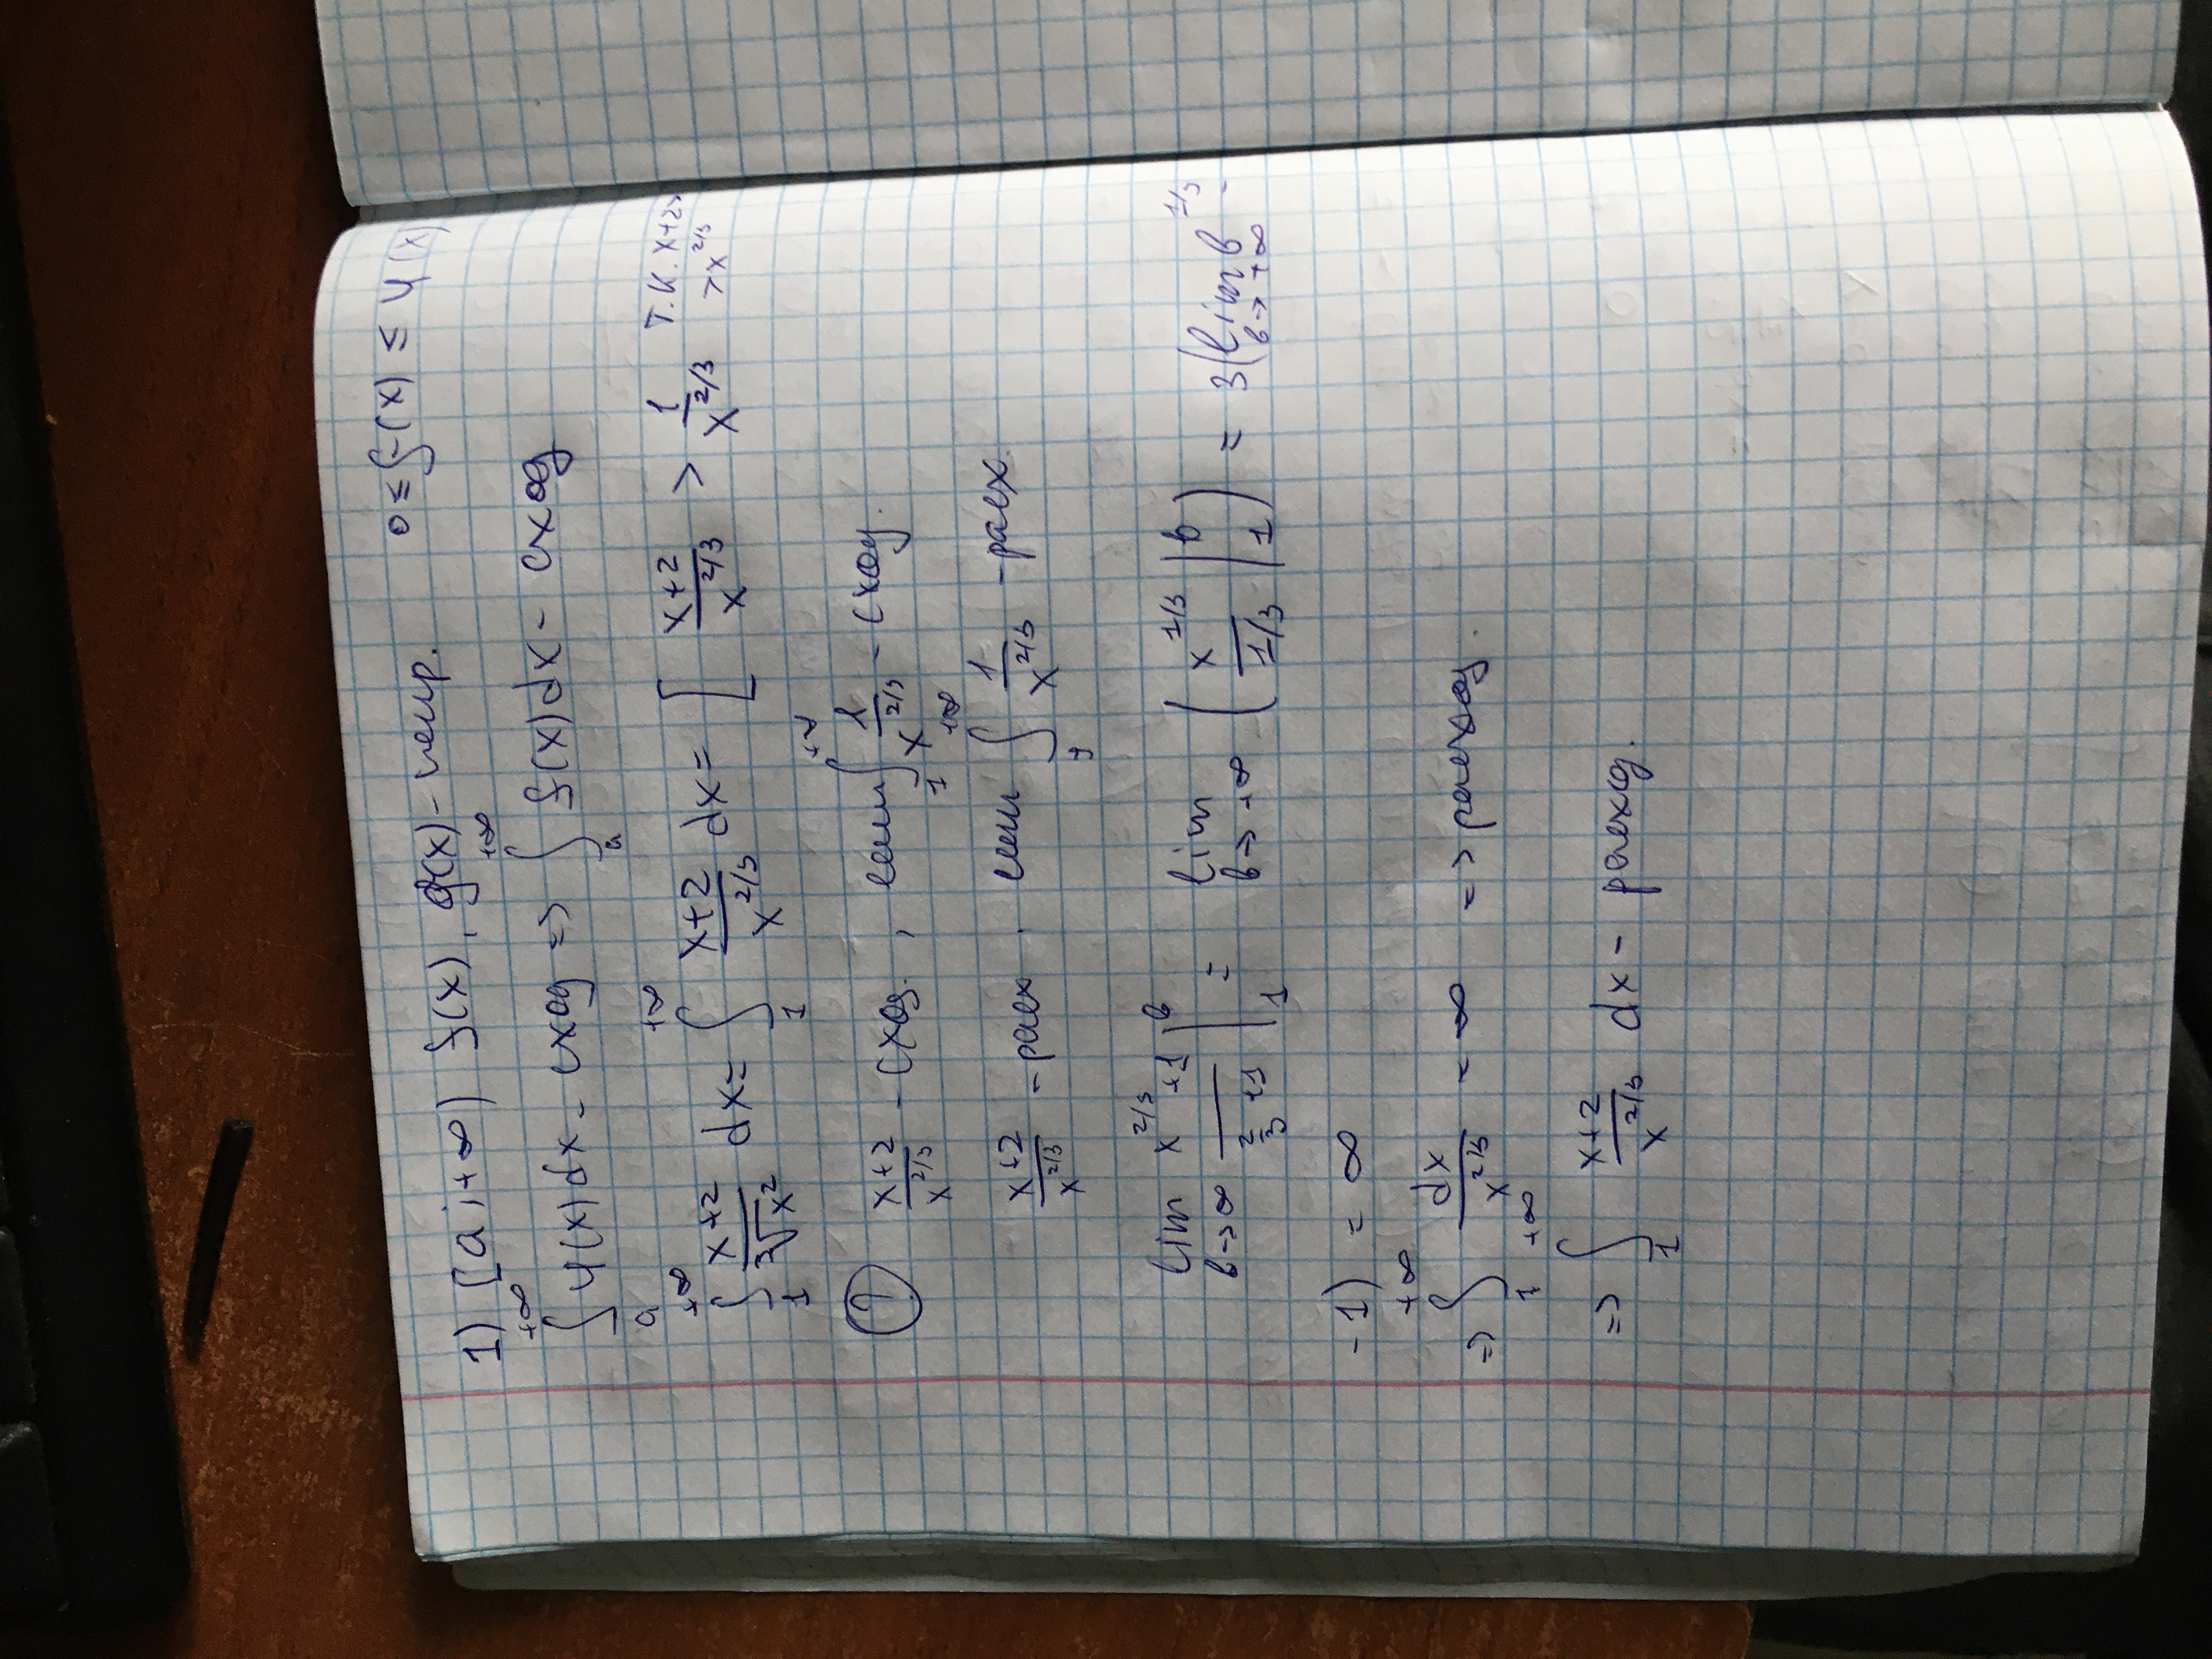 1) [a;+∞) f(x), g(x) - непр. 0 ≤ f(x) ≤ φ(x)
∫_a^{+∞} φ(x)dx - сход => ∫_a^{+∞} f(x)dx - сход
∫_1^{+∞} (x+2)/∛(x²) dx = ∫_1^{+∞} (x+2)/x^{2/3} dx = [ (x+2)/x^{2/3} > 1/x^{2/3} т.к. x+2 > > x^{2/3}
(x+2)/x^{2/3} - сход., если ∫_1^{+∞} 1/x^{2/3} - сход.
(x+2)/x^{2/3} - расх. если ∫_1^{+∞} 1/x^{2/3} - расх.
lim_{b→∞} (x^{2/3+1})/(2/3+1) |_1^b = lim_{b→+∞} ( x^{1/3}/(1/3) |_1^b ) = 3(lim_{b→+∞} b^{1/3} -
-1) = ∞
=> ∫_1^{+∞} dx/x^{2/3} = ∞ => расход.
=> ∫_1^{+∞} (x+2)/x^{2/3} dx - расход.